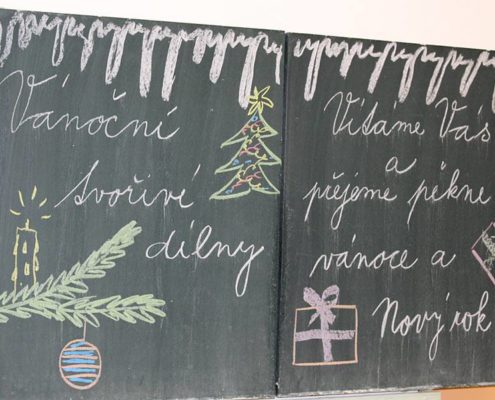 Vánoční
tvořivé
dílny
Vítáme Vás
a
přejeme pěkné
vánoce a
Nový rok